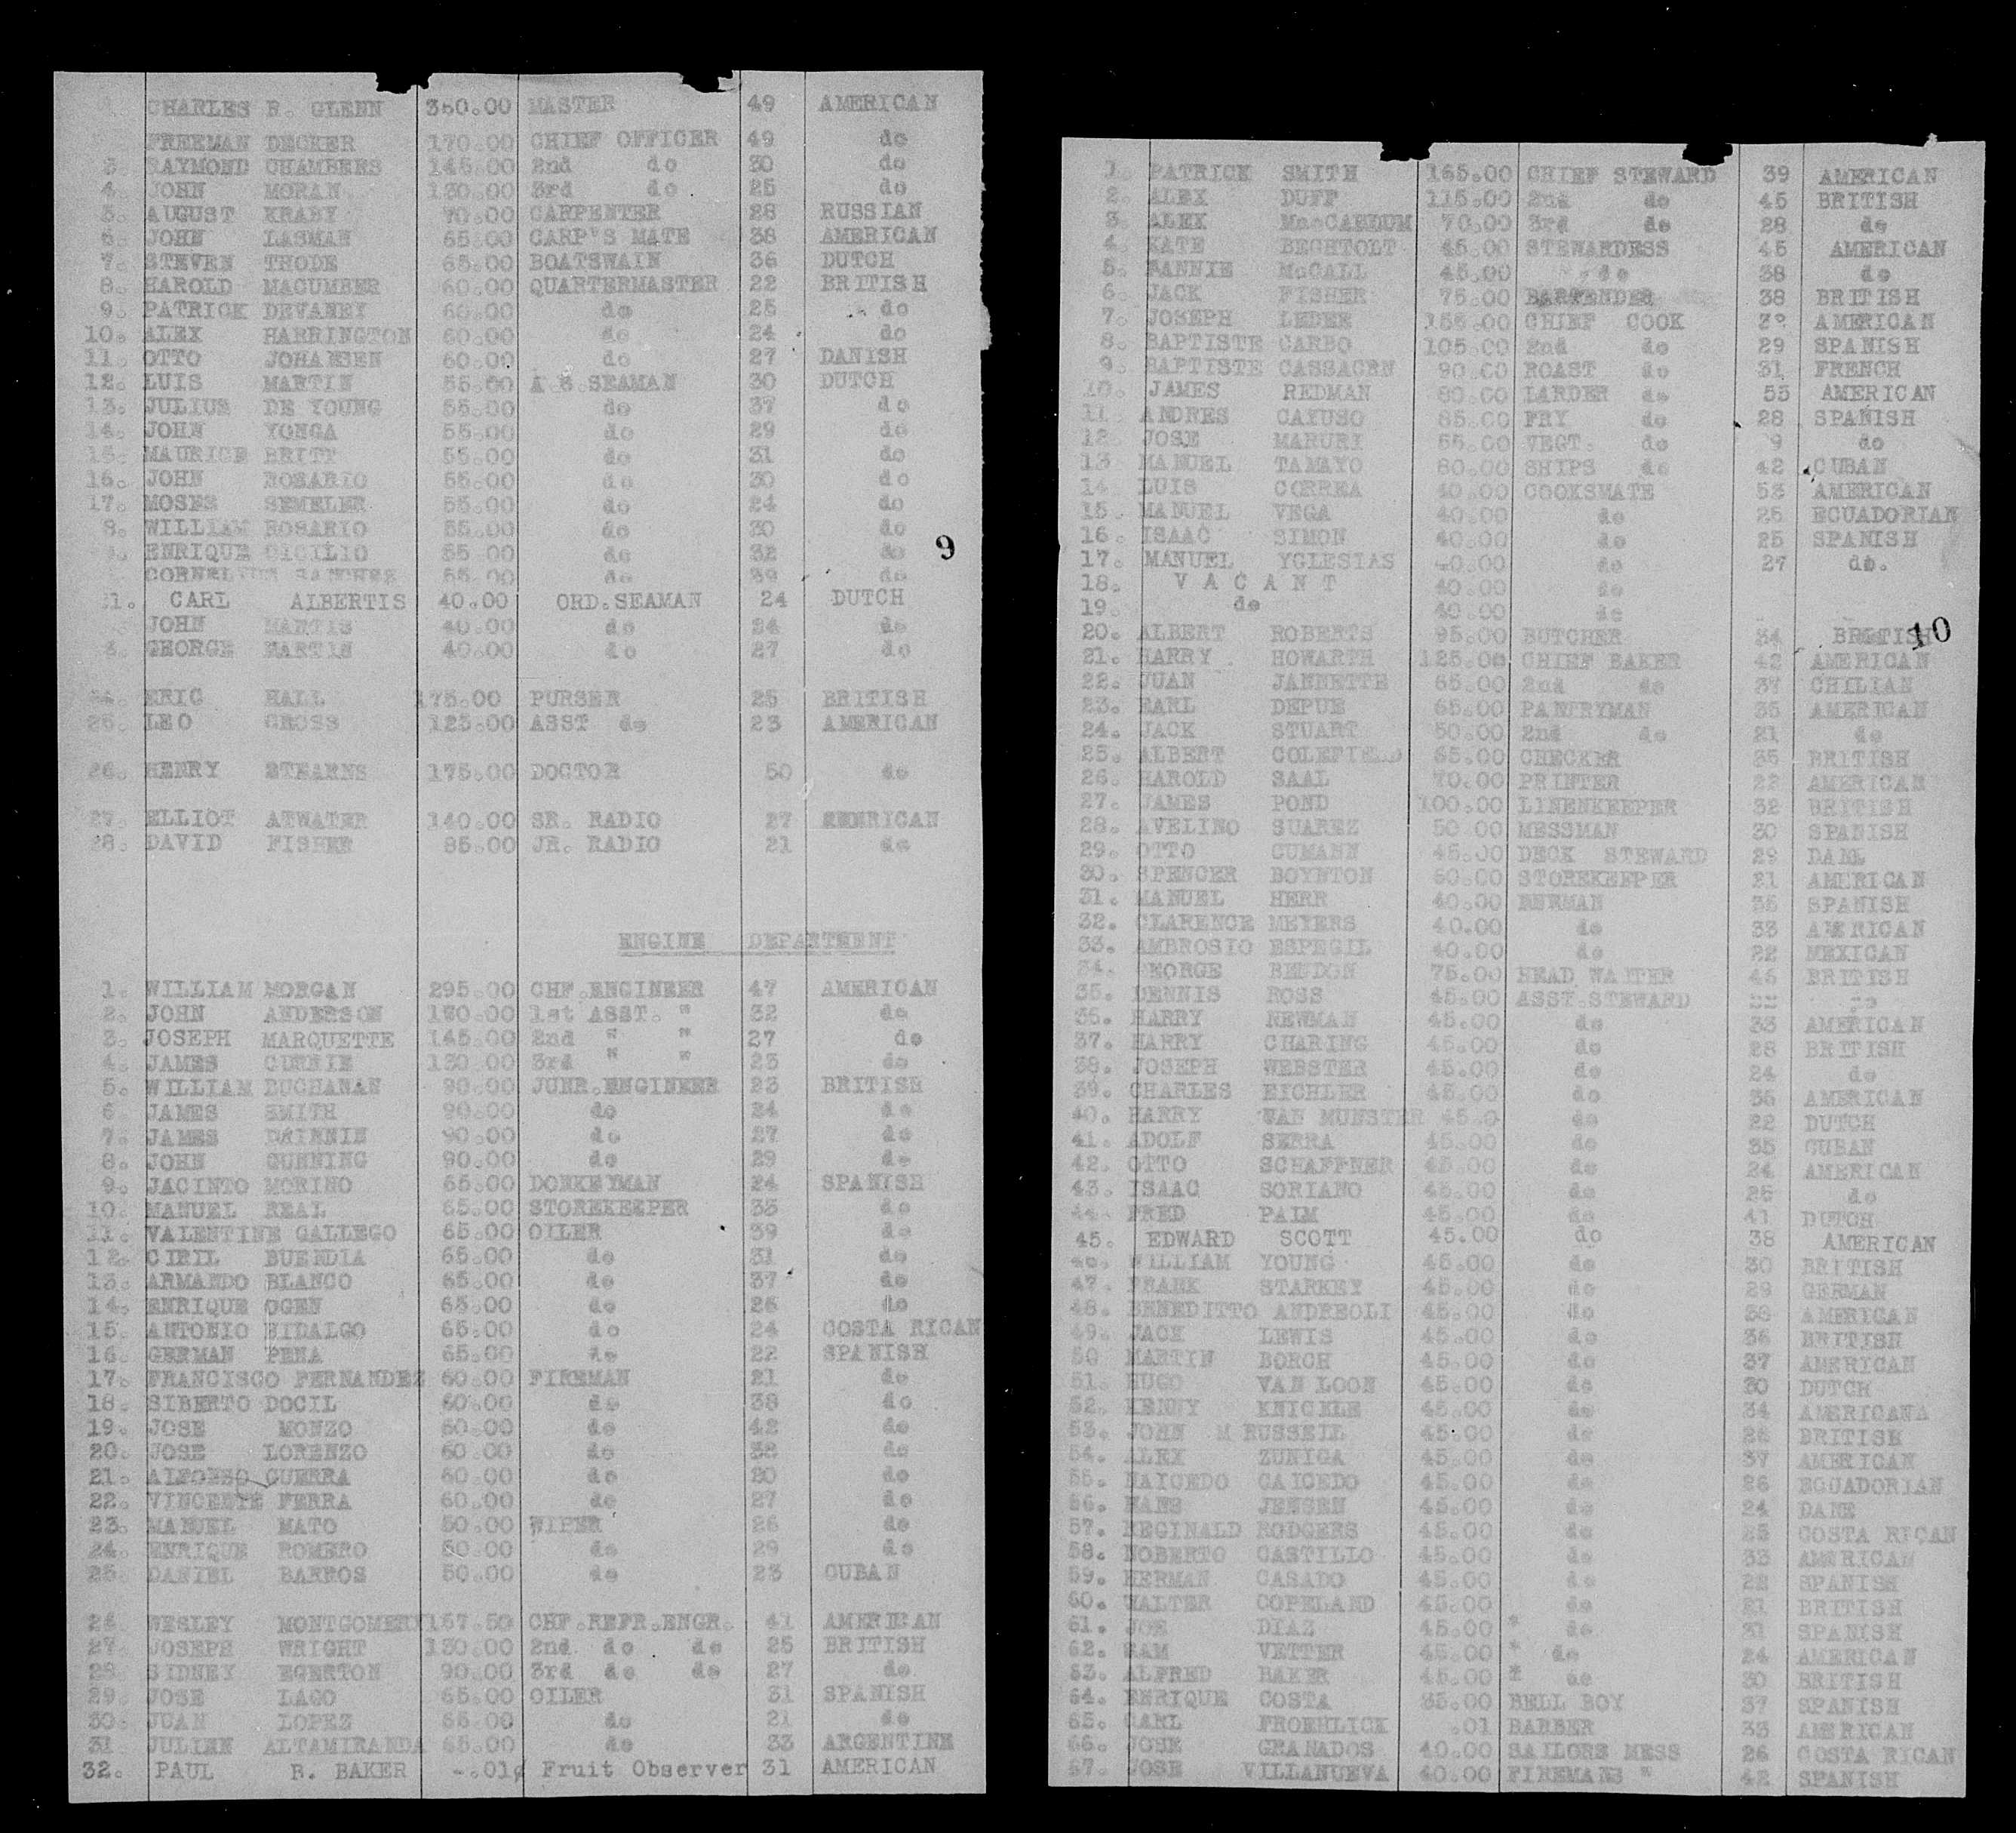 CHARLES R. GLENN 350.00 MASTER 49 AMERICAN
FREEMAN DECKER 170.00 CHIEF OFFICER 49 do
3. RAYMOND CHAMBERS 145.00 2nd do 30 do
4. JOHN MORAN 130.00 3rd do 25 do
5. AUGUST KRABY 70.00 CARPENTER 28 RUSSIAN
6. JOHN LASMAN 65.00 CARP'S MATE 38 AMERICAN
7. STEVEN THODE 65.00 BOATSWAIN 36 DUTCH
8. HAROLD MACUMBER 60.00 QUARTERMASTER 22 BRITISH
9. PATRICK DEVANEY 60.00 do 25 do
10. ALEX HARRINGTON 60.00 do 24 do
11. OTTO JOHANSEN 60.00 do 27 DANISH
12. LUIS MARTIN 55.00 A B SEAMAN 30 DUTCH
13. JULIUS DE YOUNG 55.00 do 37 do
14. JOHN YONGA 55.00 do 29 do
15. MAURICE BRITT 55.00 do 31 do
16. JOHN ROSARIO 55.00 do 30 do
17. MOSES SEMELER 55.00 do 24 do
8. WILLIAM ROSARIO 55.00 do 30 do
ENRIQUE DICILIO 55.00 do 32 do
9
CORNELIUS SANCHEZ 55.00 do 39 do
21. CARL ALBERTIS 40.00 ORD.SEAMAN 24 DUTCH
JOHN MARTIS 40.00 do 24 do
3. GEORGE MARTIN 40.00 do 27 do
24. ERIC HALL 175.00 PURSER 25 BRITISH
25. LEO GROSS 125.00 ASST do 23 AMERICAN
26. HENRY STEARNS 175.00 DOCTOR 50 do
27. ELLIOT ATWATER 140.00 SR. RADIO 27 AMERICAN
28. DAVID FISHER 85.00 JR. RADIO 21 do
ENGINE DEPARTMENT
1. WILLIAM MORGAN 295.00 CHF.ENGINEER 47 AMERICAN
2. JOHN ANDERSON 170.00 1st ASST. " 32 do
3. JOSEPH MARQUETTE 145.00 2nd " " 27 do
4. JAMES 130.00 3rd " " 23 do
5. WILLIAM BUCHANAN 90.00 JUNR.ENGINEER 23 BRITISH
6. JAMES SMITH 90.00 do 24 do
7. JAMES 90.00 do 27 do
8. JOHN GUNNING 90.00 do 29 do
9. JACINTO MORINO 65.00 DONKEYMAN 24 SPANISH
10. MANUEL REAL 65.00 STOREKEEPER 33 do
11. VALENTINE GALLEGO 65.00 OILER 39 do
12. CIRIL BUENDIA 65.00 do 31 do
13. ARMANDO BLANCO 65.00 do 37 do
14. ENRIQUE OGEN 65.00 do 26 do
15. ANTONIO HIDALGO 65.00 do 24 COSTA RICAN
16. GERMAN PENA 65.00 do 22 SPANISH
17. FRANCISCO FERNANDEZ 60.00 FIREMAN 21 do
18. SIBERTO DOCIL 60.00 do 38 do
19. JOSE MONZO 60.00 do 42 do
20. JOSE LORENZO 60.00 do 38 do
21. ALFONSO GUERRA 60.00 do 20 do
22. VINCENTE FERRA 60.00 do 27 do
23. MANUEL MATO 50.00 WIPER 26 do
24. ENRIQUE ROMERO 50.00 do 29 do
25. DANIEL BARROS 50.00 do 23 CUBAN
26. WESLEY MONTGOMERY 167.50 CHF.REFR.ENGR. 41 AMERICAN
27. JOSEPH WRIGHT 130.00 2nd do do 25 BRITISH
28. SIDNEY EGERTON 90.00 3rd do do 27 do
29. JOSE LAGO 65.00 OILER 31 SPANISH
30. JUAN LOPEZ 65.00 do 21 do
31. JULIEN ALTAMIRANDA 65.00 do 33 ARGENTINE
32. PAUL R. BAKER -.01¢ Fruit Observer 31 AMERICAN
1. PATRICK SMITH 165.00 CHIEF STEWARD 39 AMERICAN
2. ALEX DUFF 115.00 2nd do 45 BRITISH
3. ALEX 70.00 3rd do 28 do
4. KATE BECHTOLT 45.00 STEWARDESS 45 AMERICAN
5. FANNIE McCALL 45.00 do 38 do
6. JACK FISHER 75.00 BARTENDER 38 BRITISH
7. JOSEPH LEDEE 155.00 CHIEF COOK 39 AMERICAN
8. BAPTISTE CARBO 105.00 2nd do 29 SPANISH
9. BAPTISTE CASSAGEN 90.00 ROAST do 31 FRENCH
10. JAMES REDMAN 80.00 LARDER do 53 AMERICAN
11. ANDRES CAYUSO 85.00 FRY do 28 SPANISH
12. JOSE MARURI 65.00 VEGT. do 9 do
13 MANUEL TAMAYO 80.00 SHIPS do 42 CUBAN
14 LUIS CORREA 40.00 COOKSMATE 53 AMERICAN
15. MANUEL VEGA 40.00 do 25 ECUADORIAN
16. ISAAC SIMON 40.00 do 25 SPANISH
17. MANUEL YGLESIAS 40.00 do 27 do.
18. VACANT 40.00 do
19. do 40.00 do
20. ALBERT ROBERTS 95.00 BUTCHER 34 BRITISH
10
21. HARRY HOWARTH 125.00 CHIEF BAKER 42 AMERICAN
22. JUAN JANNETTE 65.00 2nd do 37 CHILIAN
23. EARL DEPUE 65.00 PANTRYMAN 35 AMERICAN
24. JACK STUART 50.00 2nd do 21 do
25. ALBERT COLEFIELD 65.00 CHECKER 35 BRITISH
26. HAROLD SAAL 70.00 PRINTER 22 AMERICAN
27. JAMES POND 100.00 LINENKEEPER 32 BRITISH
28. AVELINO SUAREZ 50.00 MESSMAN 30 SPANISH
29. OTTO GUMANN 45.00 DECK STEWARD 29 DANE
30. SPENCER BOYNTON 60.00 STOREKEEPER 21 AMERICAN
31. MANUEL HERR 40.00 36 SPANISH
32. CLARENCE MEYERS 40.00 do 33 AMERICAN
33. AMBROSIO ESPEGIL 40.00 do 22 MEXICAN
34. GEORGE BENDON 75.00 HEAD WAITER 46 BRITISH
35. DENNIS ROSS 45.00 ASST.STEWARD do
36. HARRY NEWMAN 45.00 do 33 AMERICAN
37. HARRY CHARING 45.00 do 28 BRITISH
38. JOSEPH WEBSTER 45.00 do 24 do
39. CHARLES EICHLER 45.00 do 36 AMERICAN
40. HARRY VAN MUNSTER 45.0 do 22 DUTCH
41. ADOLF SERRA 45.00 do 35 CUBAN
42. OTTO SCHAFFNER 45.00 do 24 AMERICAN
43. ISAAC SORIANO 45.00 do 25 do
44. FRED PALM 45.00 do 41 DUTCH
45. EDWARD SCOTT 45.00 do 38 AMERICAN
46. WILLIAM YOUNG 45.00 do 30 BRITISH
47. FRANK STARKEY 45.00 do 29 GERMAN
48. BENEDITTO ANDREOLI 45.00 do 38 AMERICAN
49. JACK LEWIS 45.00 do 36 BRITISH
50 MARTIN BORCH 45.00 do 37 AMERICAN
51. HUGO VAN LOON 45.00 do 30 DUTCH
52. KENNY KNICKLE 45.00 do 34 AMERICANA
53. JOHN M RUSSELL 45.00 do 26 BRITISH
54. ALEX ZUNIGA 45.00 do 37 AMERICAN
55. NAICEDO CAICEDO 45.00 do 26 ECUADORIAN
56. HANS JENSEN 45.00 do 24 DANE
57. REGINALD RODGERS 45.00 do 25 COSTA RICAN
58. NOBERTO CASTILLO 45.00 do 33 AMERICAN
59. HERMAN CASADO 45.00 do 22 SPANISH
60. WALTER COPELAND 45.00 do 21 BRITISH
61. JOE DIAZ 45.00 * do 31 SPANISH
62. SAM VETTER 45.00 * do 24 AMERICAN
63. ALFRED BAKER 45.00 * do 30 BRITISH
64. ENRIQUE COSTA 35.00 BELL BOY 37 SPANISH
65. CARL FROEHLICK .01 BARBER 33 AMERICAN
66. JOSE GRANADOS 40.00 SAILORS MESS 26 COSTA RICAN
67. JOSE VILLANUEVA 40.00 FIREMANS " 42 SPANISH